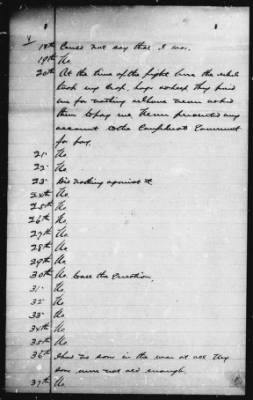 4
18th Could not say that I was.
19th No
20th At the time of the fight here the rebels
took my crop, hogs & sheep they paid
me for nothing whom I never asked
them to pay me, I never presented any
account to the Confederate Government
for pay.
21. No
22. No
23. Did nothing against it
24th No
25th No
26th No
27th No
28th No
29th No
30th No Pass the Question.
31. No
32. No
33. No
34th No
35th No
36th I had no sons in the war at all They
were not old enough
37th No